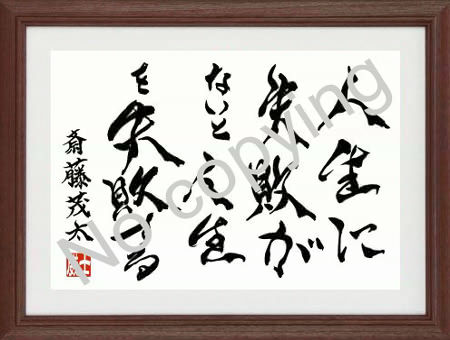 人生に
失敗が
ないと人生
を失敗する
斎藤茂太
No copying